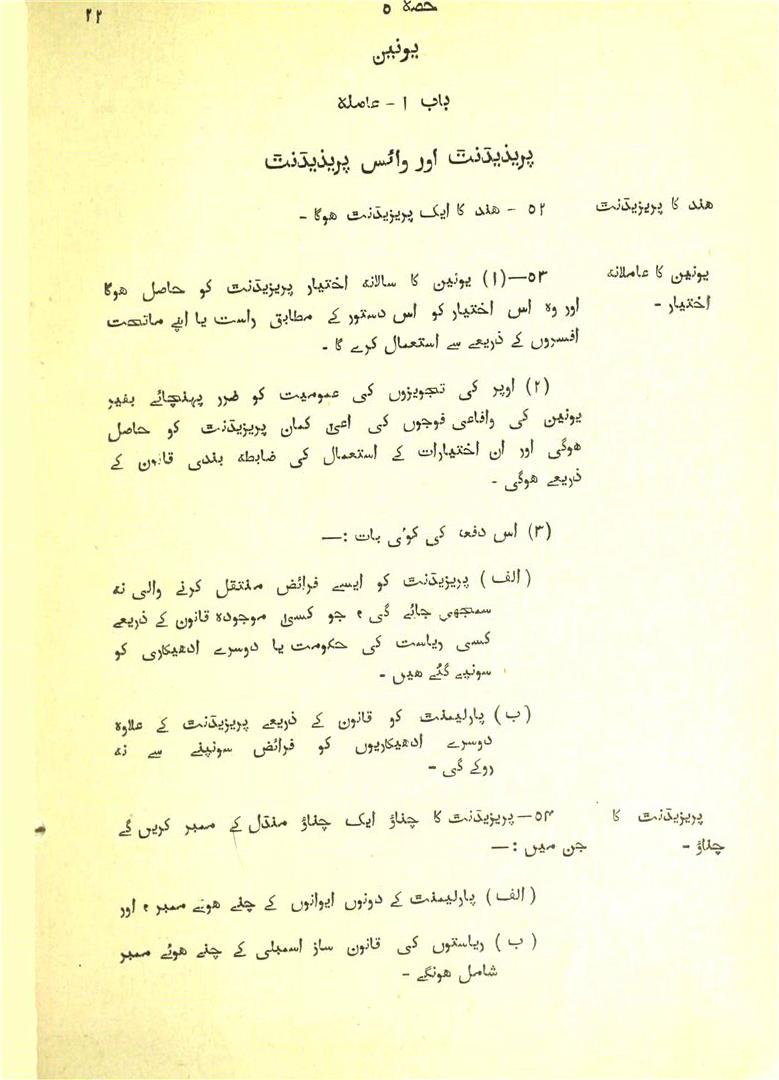 حصہ ۵
۲۲
یونین
باب ۱ - عاملہ
پریذیڈنٹ اور وائس پریذیڈنٹ
ھند کا پریزیڈنٹ
۵۲ - ھند کا ایک پریزیڈنٹ ھوگا -
یونین کا عاملانہ
اختیار -
۵۳—(۱) یونین کا سالانہ اختیار پریزیڈنٹ کو حاصل ھوگا
اور وہ اس اختیار کو اس دستور کے مطابق راست یا اپنے ماتحت
افسروں کے ذریعے سے استعمال کرے گا -
(۲) اوپر کی تجویزوں کی عمومیت کو ضرر پہنچائے بغیر
یونین کی وافاعی فوجوں کی اعلیٰ کمان پریزیڈنٹ کو حاصل
ھوگی اور ان اختیارات کے استعمال کی ضابطہ بندی قانون کے
ذریعے ھوگی -
(۳) اس دفعہ کی کوئی بات :—
(الف) پریزیڈنٹ کو ایسے فرائض منتقل کرنے والی نہ
سمجھی جائے گی ، جو کسی موجودہ قانون کے ذریعے
کسی ریاست کی حکومت یا دوسرے ادھیکاری کو
سونپے گئے ھیں -
(ب) پارلیمنٹ کو قانون کے ذریعے پریزیڈنٹ کے علاوہ
دوسرے ادھیکاریوں کو فرائض سونپنے سے نہ
روکے گی -
پریزیڈنٹ کا
چناؤ -
۵۴—پریزیڈنٹ کا چناؤ ایک چناؤ منڈل کے ممبر کریں گے
جن میں :—
(الف) پارلیمنٹ کے دونوں ایوانوں کے چنے ھوئے ممبر ، اور
(ب) ریاستوں کی قانون ساز اسمبلی کے چنے ھوئے ممبر
شامل ھونگے -